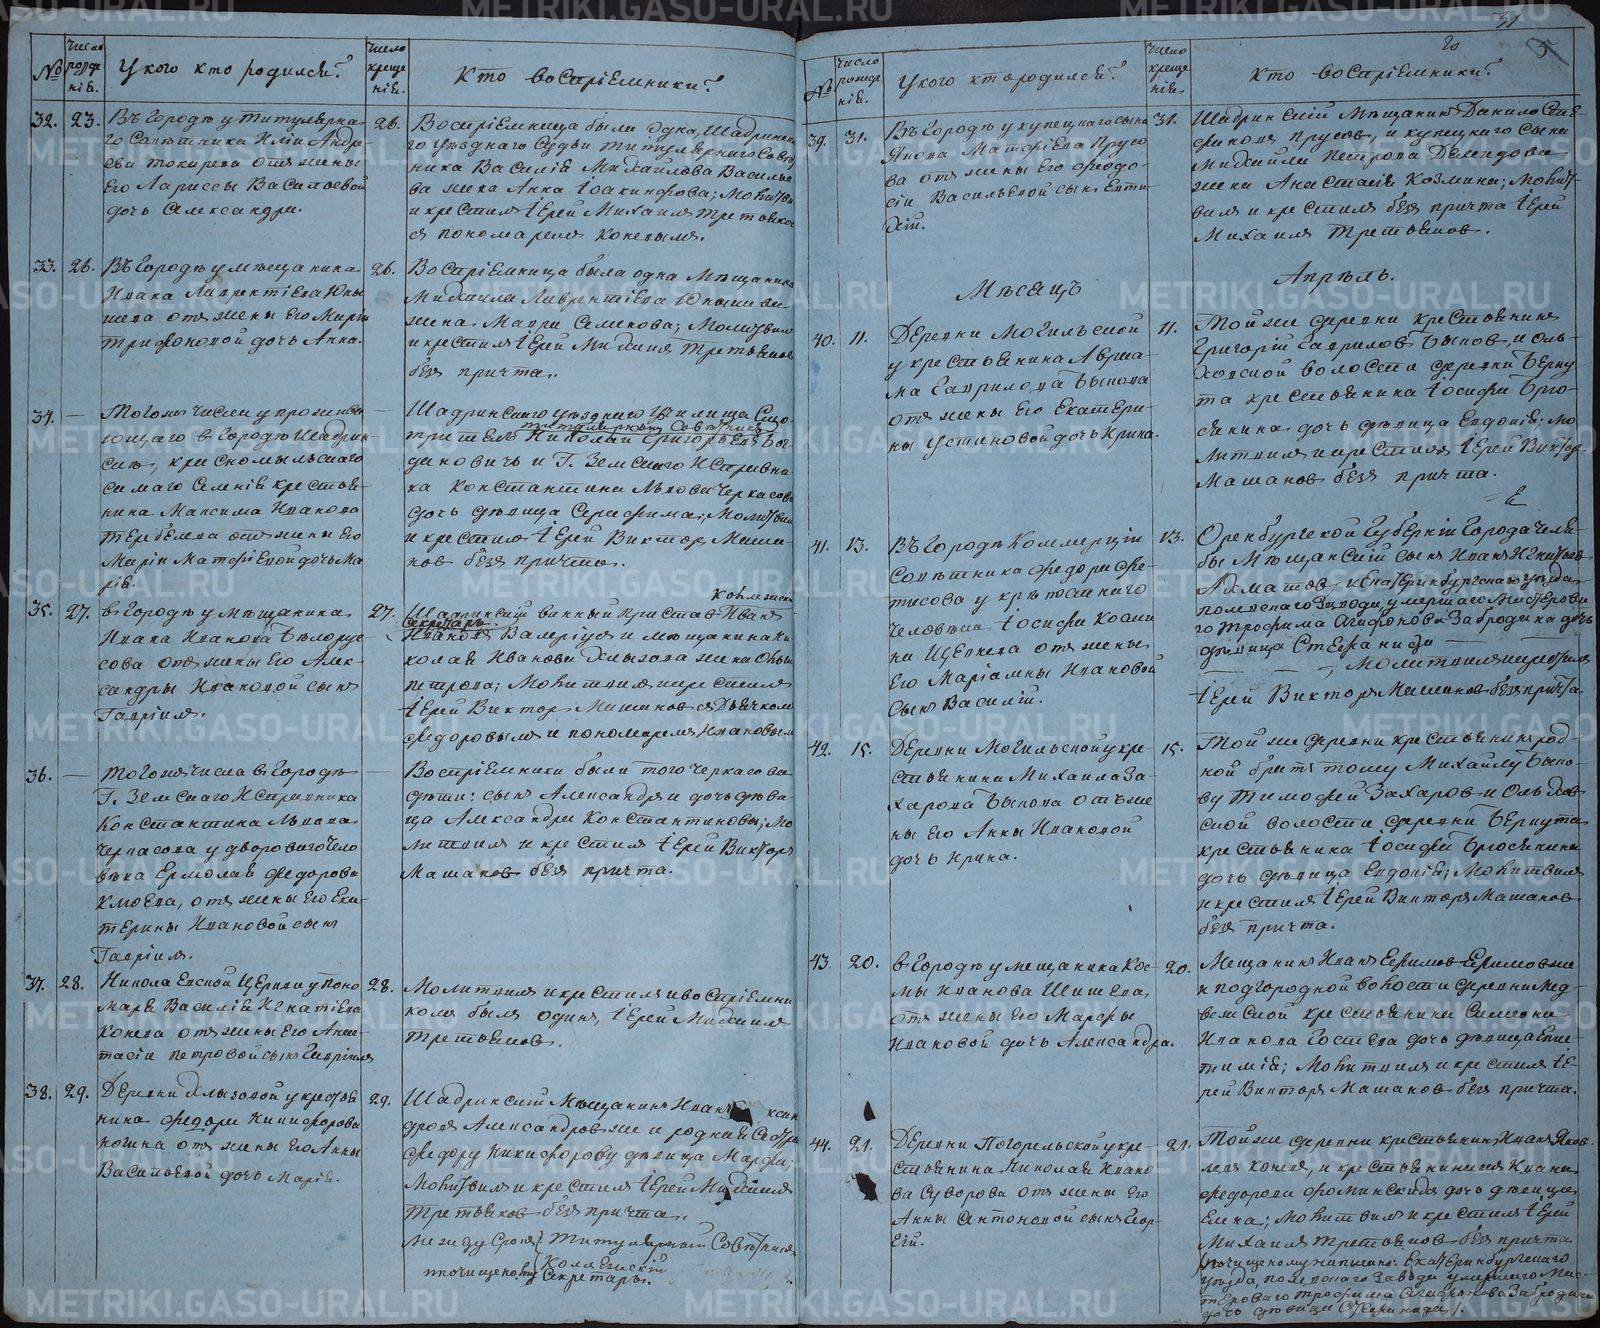 №
Число рожденія.
У кого кто родился?
Число крещенія.
Кто воспріемники?
32. 23.
Въ городѣ у титулярна-
го совѣтника Иліи Андре-
ева токарева отъ жены
его Лариссы Васильевой
дочь Александра.
26.
Воспріемница была одна, Шадринска-
го уѣзднаго Судьи титулярнаго Совѣт-
ника Василія Михайлова Василье-
ва жена Анна Іоакинфова; Молитвилъ
и крестилъ Іерей Михаилъ Третьяковъ
съ пономаремъ Коневымъ.
33. 26.
Въ городѣ у мѣщанина
Ивана Лаврентіева
отъ жены его Марѳы
Трифоновой дочь Анна.
26.
Воспріемница была одна мѣщанина
Михаила Лаврентіева
жена Мавра Семенова; Молитвилъ
и крестилъ Іерей Михаилъ Третьяковъ
безъ причта.
34. —
Тогожъ числа у прожива-
ющаго въ городѣ Шадрин-
скѣ, красномыльскаго
самаго селенія крестья-
нина Максима Иванова
отъ жены его
Маріи Матфіевой дочь Ма-
рія.
—
Шадринскаго уѣзднаго училища Смо-
титулярный Совѣтникъ
тритель Николай Григорьевъ Бог-
дановичь и Г. Земскаго Исправни-
ка Константина Львова Черкасова
дочь дѣвица Серафима; Молитвилъ
и крестилъ Іерей Викторъ Маша-
новъ безъ причта.
35. 27.
въ городѣ у мѣщанина
Ивана Иванова Бѣлоус-
сова отъ жены его Алек-
сандры Ивановой сынъ
Гавріилъ.
27.
Коллежскій
Шадринскій винный приставъ Иванъ
Секретарь
Ивановъ Валеріусъ и мѣщанина Ни-
колая Иванова Хлызова жена Ольга
Петрова; Молитвилъ и крестилъ
Іерей Викторъ Машановъ съ Дьячкомъ
Федоровымъ и пономаремъ Ивановымъ
36. —
Тогожъ числа въ городѣ
Г. Земскаго Исправника
Константина Львова
Черкасова у двороваго чело-
вѣка Ермолая Федорова
отъ жены его Ека-
терины Ивановой сынъ
Гавріилъ.
—
Воспріемники были того Черкасова
дѣти: сынъ Александръ и дочь дѣви-
ца Александра Константиновы; Мо-
литвилъ и крестилъ Іерей Викторъ
Машановъ безъ причта.
37. 28.
Николаевской Церкви у поно-
маря Василія Игнатіева
Конева отъ жены его Анас-
тасіи Петровой сынъ Гавріилъ
28.
Молитвилъ и крестилъ и воспріемни-
комъ былъ одинъ, Іерей Михаилъ
Третьяковъ.
38. 29.
Деревни Хлызовой у крестья-
нина Федора Никифорова
отъ жены его Анны
Васильевой дочь Марія.
29.
Шадринскій мѣщанинъ Иванъ
Александровъ же и родная сестра
Федору Никифорову дѣвица Марѳа;
Молитвилъ и крестилъ Іерей Михаилъ
Третьяковъ безъ причта.
Между строкъ: Титулярный Совѣтникъ
почищеному Коллежскій
Секретарь.
31
№
Число рожденія.
У кого кто родился?
Число крещенія.
Кто воспріемники?
39. 31.
Въ городѣ у купецкаго сына
Якова Матфіева Прусо-
ва отъ жены его Феодо-
сіи Васильевой сынъ Евти-
хій.
31.
Шадринскій мѣщанинъ Данило Сте-
фановъ Прусовъ, и купецкаго сына
Михайла Петрова Демидова
жена Анастасія Козмина; Молит-
вилъ и крестилъ безъ причта Іерей
Михаилъ Третьяковъ.
Мѣсяцъ Апрѣль.
40. 11.
Деревни Могильской
у крестьянина Авраа-
ма Гаврилова Быкова
отъ жены его Екатери-
ны Устиновой дочь Ирина.
11.
Той же деревни крестьянинъ
Григорій Гавриловъ Быковъ, и Оль-
ховской волости деревни Берку-
та крестьянина Іосифа Брю-
сянина дочь дѣвица Евдокія; Мо-
литвилъ и крестилъ Іерей Викторъ
Машановъ безъ причта.
41. 13.
Въ городѣ Коммерціи
Совѣтника Федора Фе-
тисова у крѣпостнаго
человѣка Іосифа Козми-
на Щепкова отъ жены
его Маріамны Ивановой
сынъ Василій.
13.
Оренбургской губерніи города Челя-
бы мѣщанскій сынъ Иванъ Игнатьевъ
Ахматовъ и Екатеринбургскаго уѣзда
полевскаго завода, умершаго мастерова-
го Трофима Агафонова Забродина дочь
дѣвица Стефанида
Молитвилъ и крестилъ
Іерей Викторъ Машановъ безъ причта.
42. 15.
Деревни Могильской у кре-
стьянина Михаила За-
харова Быкова отъ же-
ны его Анны Ивановой
дочь Ирина.
15.
Той же деревни крестьянинъ род-
ной братъ тому Михайлу Быко-
ву Тимофей Захаровъ и Ольхов-
ской волости деревни Беркута
крестьянина Іосифа Брюсянина
дочь дѣвица Евдокія; Молитвилъ
и крестилъ Іерей Викторъ Машановъ
безъ причта.
43. 20.
въ городѣ у мещанина Кос-
мы Иванова Шишева,
отъ жены его Марѳы
Ивановой дочь Александра.
20.
Мещанинъ Иванъ Ефимовъ
и подгородной волости деревни Мед-
вежской крестьянина Симеона
Иванова Гостева дочь дѣвица
Молитвилъ и крестилъ Іе-
рей Викторъ Машановъ безъ причта.
44. 21.
Деревни Погорельской у кре-
стьянина Николая Ивано-
ва Суворова отъ жены его
Анны Антоновой сынъ Геор-
гій.
21.
Той же деревни крестьянинъ Иванъ Яков-
левъ Коневъ, и крестьянина Ивана
Федорова Фоминскихъ дочь дѣвица
Елена; Молитвилъ и крестилъ Іерей
Михаилъ Третьяковъ безъ причта.
почищеному написано: Екатеринбургскаго
уѣзда, полевскаго завода умершаго мас-
тероваго Трофима Агафонова Забродина
дочь дѣвица Стефанида.
METRIKI.GASO-URAL.RU